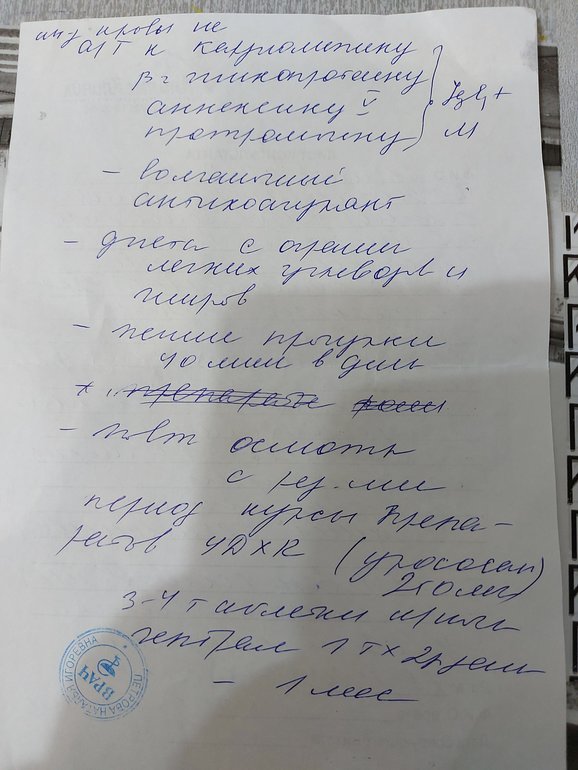 анализ крови на
а/т к кардиолипину
β2 гликопротеину
аннексину V
протромбину
IgG, +
M
- волчаночный
антикоагулянт
- диета с огранич
легких углеводов и
жиров
- пешие прогулки
40 мин в день
- повт осмотр
с рез-ми
период курсы препа-
ратов УДХК (урсосан)
250 мг
3-4 таблетки
1 т х 2 р день
- 1 мес
ПЕТРОВА НАТАЛЬЯ ИГОРЕВНА
ВРАЧ